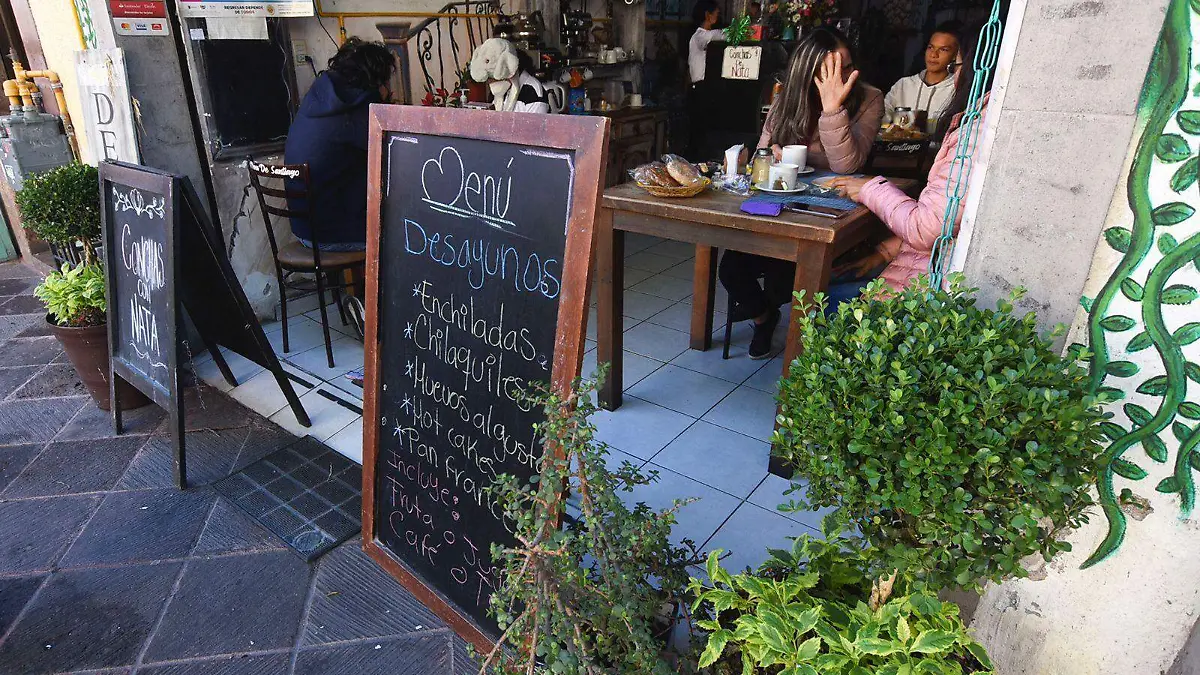 Menú
Desayunos
*Enchiladas
*Chilaquiles
*Huevos algusto
*Hot cakes
*Pan franc
Incluye:
Fruta o Ju
Café o T
CONCHAS
CON
NATA
CONCHAS
DE
NATA
DE
De Santiago
Santiago
Santander
VISA